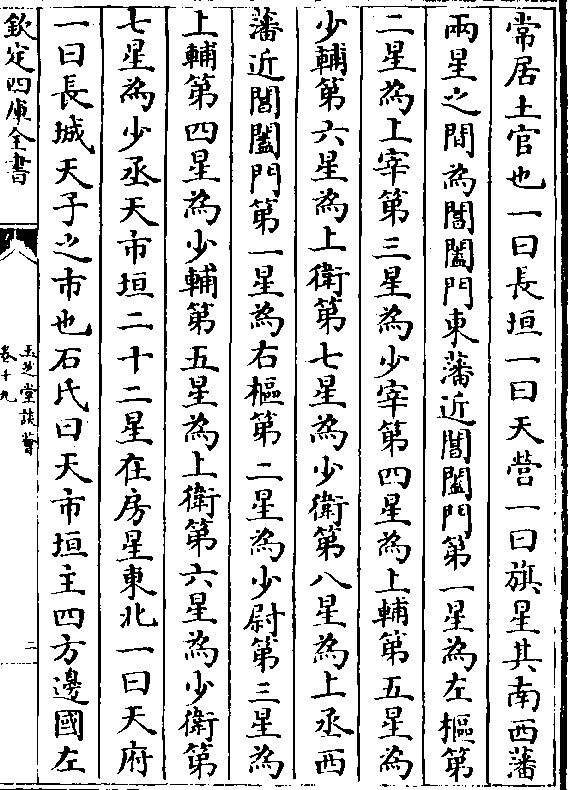 常居土官也一曰長垣一曰天營一曰旗星其南西藩
兩星之間為閶闔門東藩近閶闔門第一星為左樞第
二星為上宰第三星為少宰第四星為上輔第五星為
少輔第六星為上衛第七星為少衛第八星為上丞西
藩近閶闔門第一星為右樞第二星為少尉第三星為
上輔第四星為少輔第五星為上衛第六星為少衛第
七星為少丞天市垣二十二星在房星東北一曰天府
一曰長城天子之市也石氏曰天市垣主四方邊國左
欽定四庫全書
玉芝堂談薈
卷十九
二